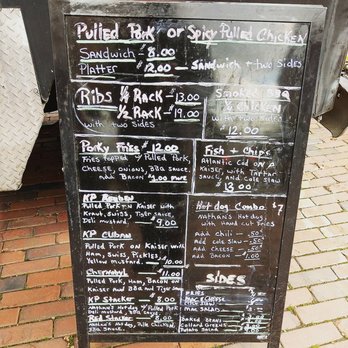 Pulled Pork or Spicy Pulled Chicken
Sandwich - $8.00
Platter $12.00 - Sandwich + two sides
Ribs 1/4 Rack - $13.00
1/2 Rack - $19.00
with two sides
Smoked BBQ
1/2 Chicken
with two sides
$12.00
Porky Fries $12.00
Fries topped w/ Pulled Pork,
Cheese, Onions, BBQ Sauce,
add Bacon $1.00 more
Fish + Chips
Atlantic Cod on a
Kaiser with Tartar
Sauce, and Cole Slaw
$13.00
KP Reuben
Pulled Pork on Kaiser with
Kraut, Swiss, Tiger Sauce,
Deli Mustard. - $9.00
Hot dog Combo $7
Nathan's Hot dog,
with Hand cut Fries
add Chili - .50
add Cole Slaw - .50
add Cheese - .50
add Bacon - 1.00
KP Cuban
Pulled Pork on Kaiser with
Ham, Swiss, Pickles,
Yellow Mustard. - $10.00
Chernobyl - 11.00
Pulled Pork, Ham, Bacon on
Kaiser and BBQ and Tiger Sauce
KP Stacker - 8.00
Nathan's Hot dog w/ Pulled Pork
Deli Mustard, BBQ Sauce
Red Stacker - 8.00
Nathan's Hot dog, Pulled Chicken,
BBQ Sauce.
SIDES
Fries
Mac & Cheese
Mac Salad
Baked Beans
Collard Greens
Potato Salad